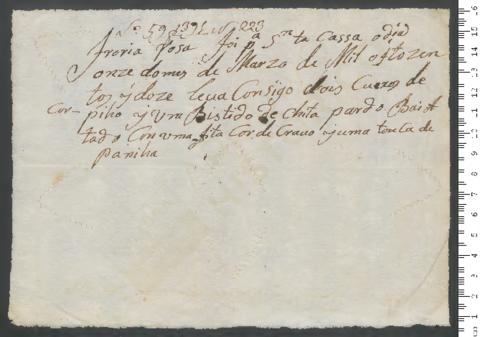 Nº 59 1391 N 223
Ireria Rosa foi pª Sᵐ ta Cassa o diã
onze domes de Marzo de Mil oftozen
tos y doze leva Consigo dois Cueros de
Corpiho y um Bistido de chita pardo Baist
tado Con uma fita Cor de Cravo y uma touca de
Paniha